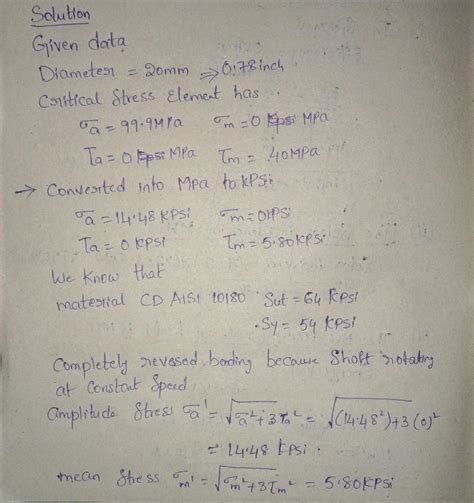 Solution
Given data
Diameter = 20mm ⇒ 0.78inch
Critical Stress Element has
σa = 99.9MPa σm = 0 Kpsi MPa
Ta = 0 Kpsi MPa τm = 40MPa
→ Converted into Mpa to kPSi
σa = 14.48 KPSi σm = 01PSi
Ta = 0 KPSi Tm = 5.80KPSi
We Know that
material CD AISI 10180 Sut = 64 KPSi
Sy = 54 KPSi
Completely revesed bending because Shaft rotating
at Constant Speed
amplitude Stress σa' = √σa²+3Ta² = √(14.48²)+3(0)²
= 14.48 KPSi.
mean Stress σm' = √σm²+3τm² = 5.80KPSi